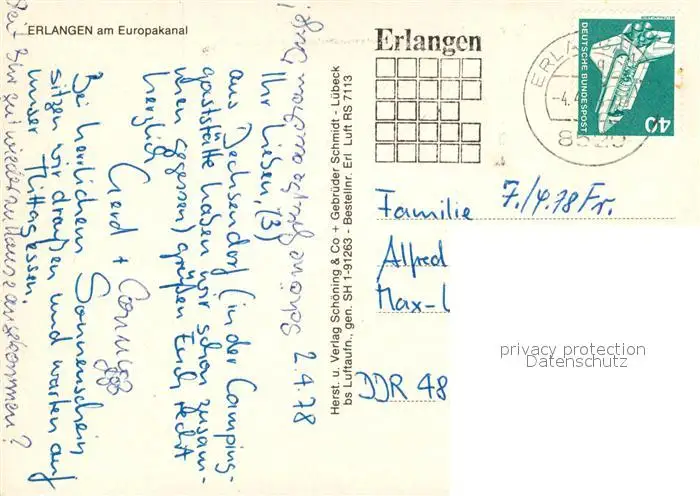 ERLANGEN am Europakanal
2.4.78
Ihr Lieben, (3)
aus Dechsendorf (in der Camping-
gaststätte haben wir schon zusam-
men gegessen) grüßen Euch recht
herzlich
Gerd + Conny
Bei herrlichem Sonnenschein
sitzen wir draußen und warten auf
unser Mittagessen.
Seit Ihr gut wieder zu Hause angekommen?
Herst. u. Verlag Schöning & Co + Gebrüder Schmidt - Lübeck
bs Luftaufn., gen. SH 1-91263 - Bestellnr. Erl Luft RS 7113
Erlangen
ERLA
-4.4
8520
DEUTSCHE BUNDESPOST
40
7./4.78 Fr.
Familie
Alfred
Max-L
DDR 48
privacy protection
Datenschutz